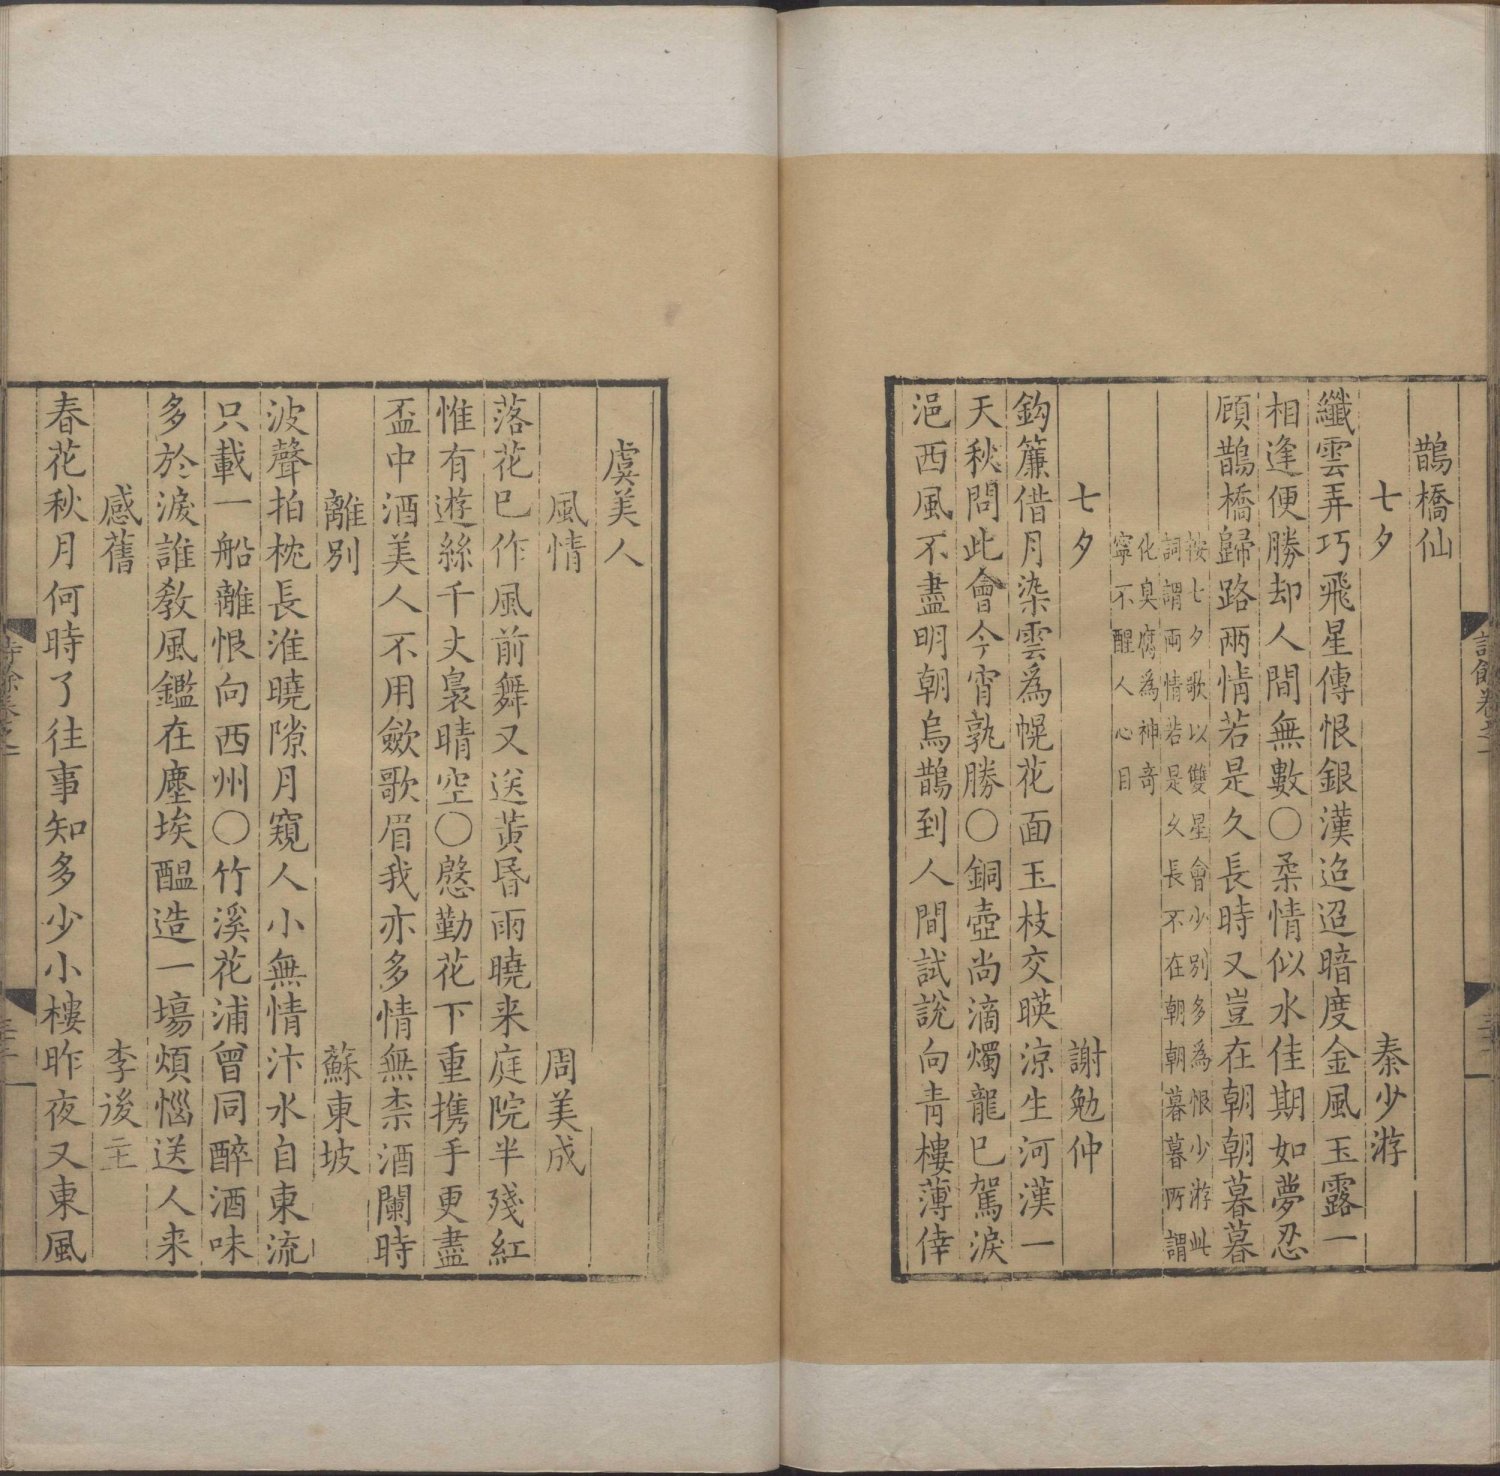 鵲橋仙
七夕 秦少游
纖雲弄巧飛星傳恨銀漢迢迢暗度金風玉露一
相逢便勝却人間無數○柔情似水佳期如夢忍
顧鵲橋歸路兩情若是久長時又豈在朝朝暮暮
按七夕歌以雙星會少別多為恨少游此
詞謂兩情若是久長不在朝朝暮暮所謂
化臭腐為神奇
寧不醒人心目
七夕 謝勉仲
鈎簾借月染雲爲幌花面玉枝交暎涼生河漢一
天秋問此會今宵孰勝○銅壺尚滴燭龍已駕淚
浥西風不盡明朝烏鵲到人間試說向青樓薄倖
虞美人
風情 周美成
落花已作風前舞又送黃昏雨曉来庭院半殘紅
惟有遊絲千丈裊晴空○慇勤花下重携手更盡
盃中酒美人不用歛歌眉我亦多情無柰酒闌時
離別 蘇東坡
波聲拍枕長淮曉隙月窺人小無情汴水自東流
只載一船離恨向西州○竹溪花浦曾同醉酒味
多於淚誰敎風鑑在塵埃醞造一塲煩惱送人来
感舊 李後主
春花秋月何時了往事知多少小樓昨夜又東風